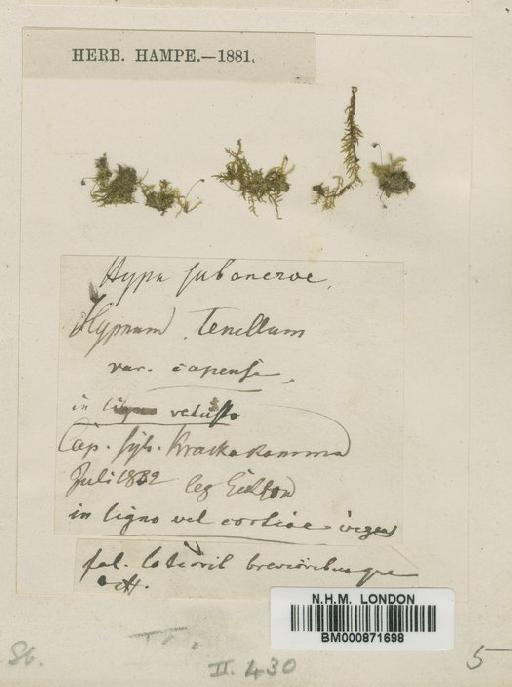 HERB. HAMPE.—1881.
Hypn subenerve,
Hypnum tenellum
var. capense,
in vetusto
Cap. sylv. Krackakamma
Juli 1832 leg Ecklon
in ligno vel cortice
fol. latiorib brevioribusque
N.H.M. LONDON
BM000871698
86.
II. 430
5